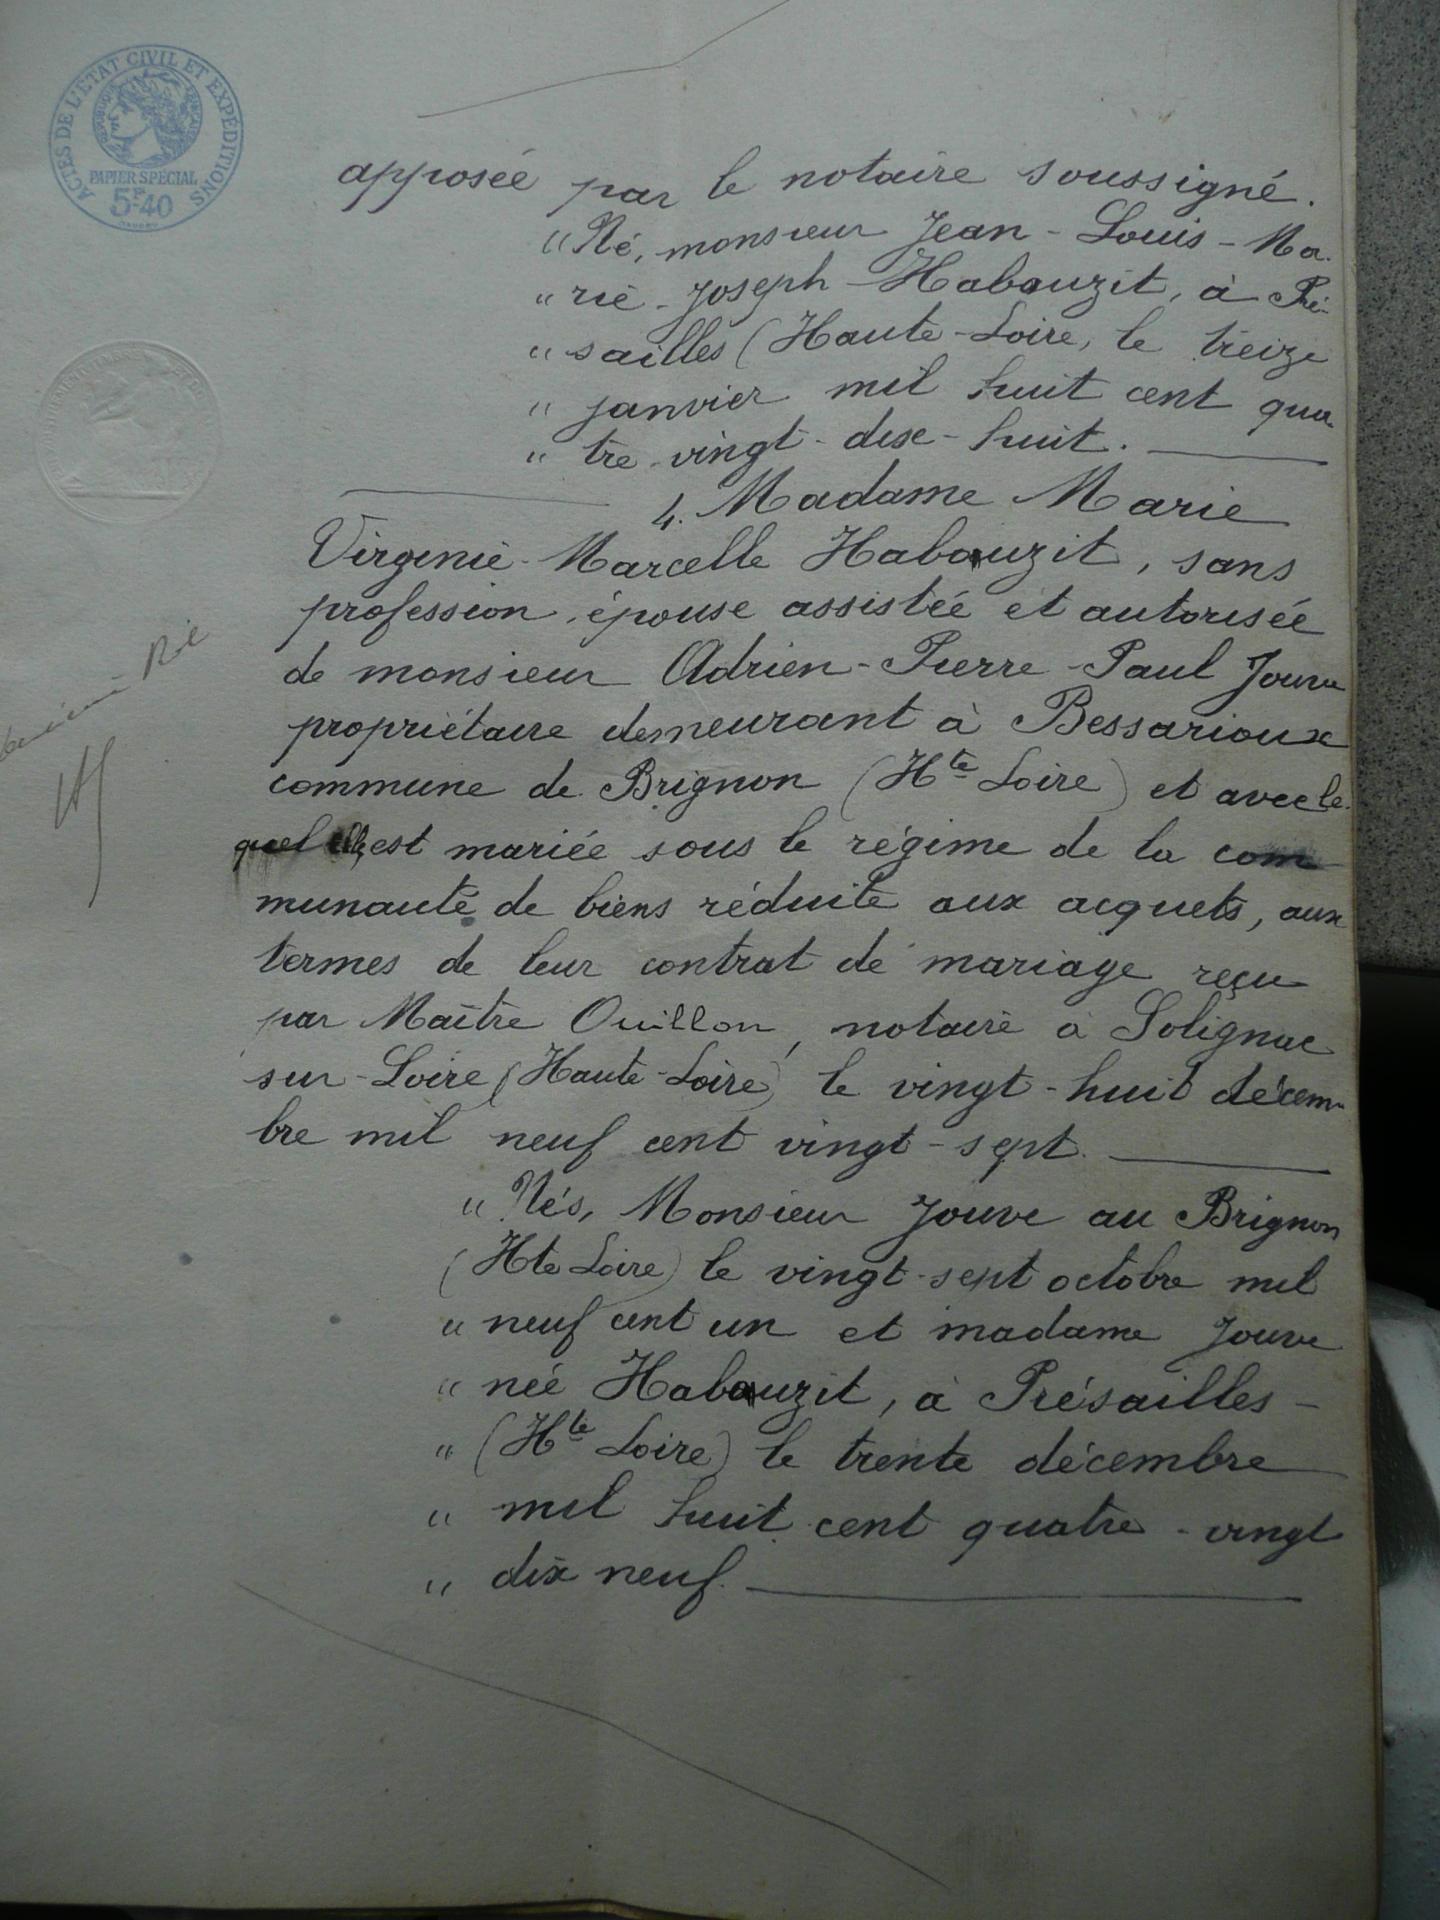 ACTES DE L'ÉTAT CIVIL ET EXPÉDITIONS
RÉPUBLIQUE FRANÇAISE
PAPIER SPÉCIAL
5F.40
apposée par le notaire soussigné.
"Né, monsieur Jean-Louis-Ma-
"rie-Joseph-Habouzit, à Pré-
"sailles (Haute-Loire, le treize
"janvier mil huit cent qua
"tre-vingt-dix-huit.
4. Madame Marie
Virginie-Marcelle Habouzit, sans
profession, épouse assistée et autorisée
de monsieur Adrien-Pierre-Paul Jouve
propriétaire demeurant à Bessarioux
commune de Brignon (Hte Loire) et avec le-
quel elle est mariée sous le régime de la com
munauté de biens réduite aux acquets, aux
termes de leur contrat de mariage reçu
par Maître Ouillon, notaire à Solignac
sur-Loire (Haute-Loire) le vingt-huit décem-
bre mil neuf cent vingt-sept.
"Nés, Monsieur Jouve au Brignon
(Hte Loire) le vingt-sept octobre mil
"neuf cent un et madame Jouve
"née Habouzit, à Présailles-
"(Hte Loire) le trente décembre
"mil huit cent quatre-vingt
"dix neuf.